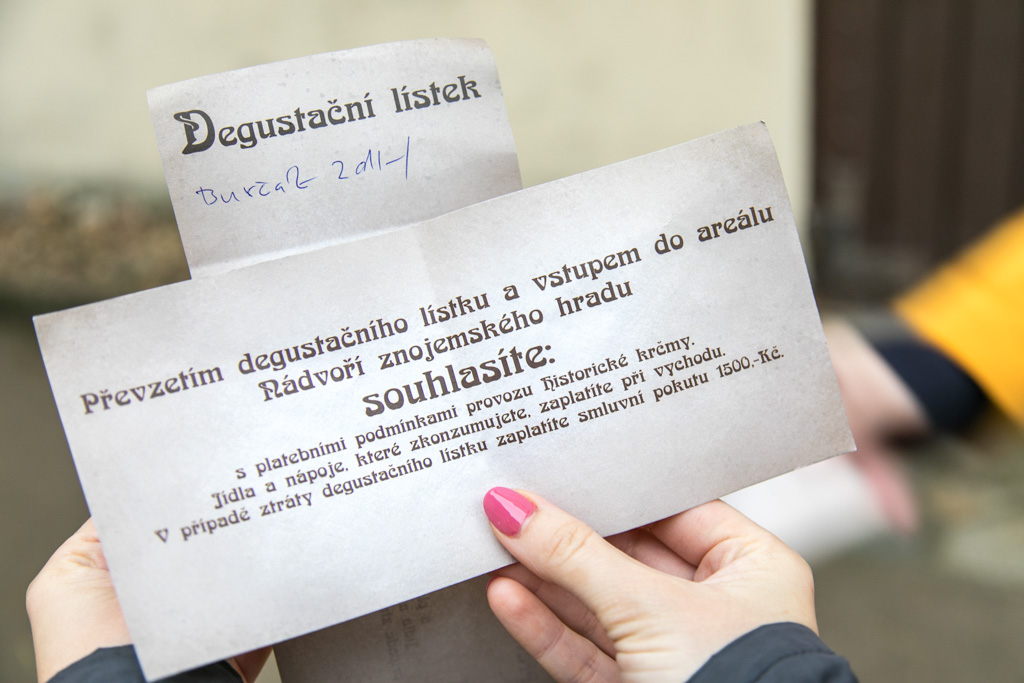 Degustační lístek
Burčák 2dl-/
Převzetím degustačního lístku a vstupem do areálu
Nádvoří znojemského hradu
souhlasíte:
s platebními podmínkami provozu Historické krčmy.
Jídla a nápoje, které zkonzumujete, zaplatíte při východu.
V případě ztráty degustačního lístku zaplatíte smluvní pokutu 1500,-Kč.